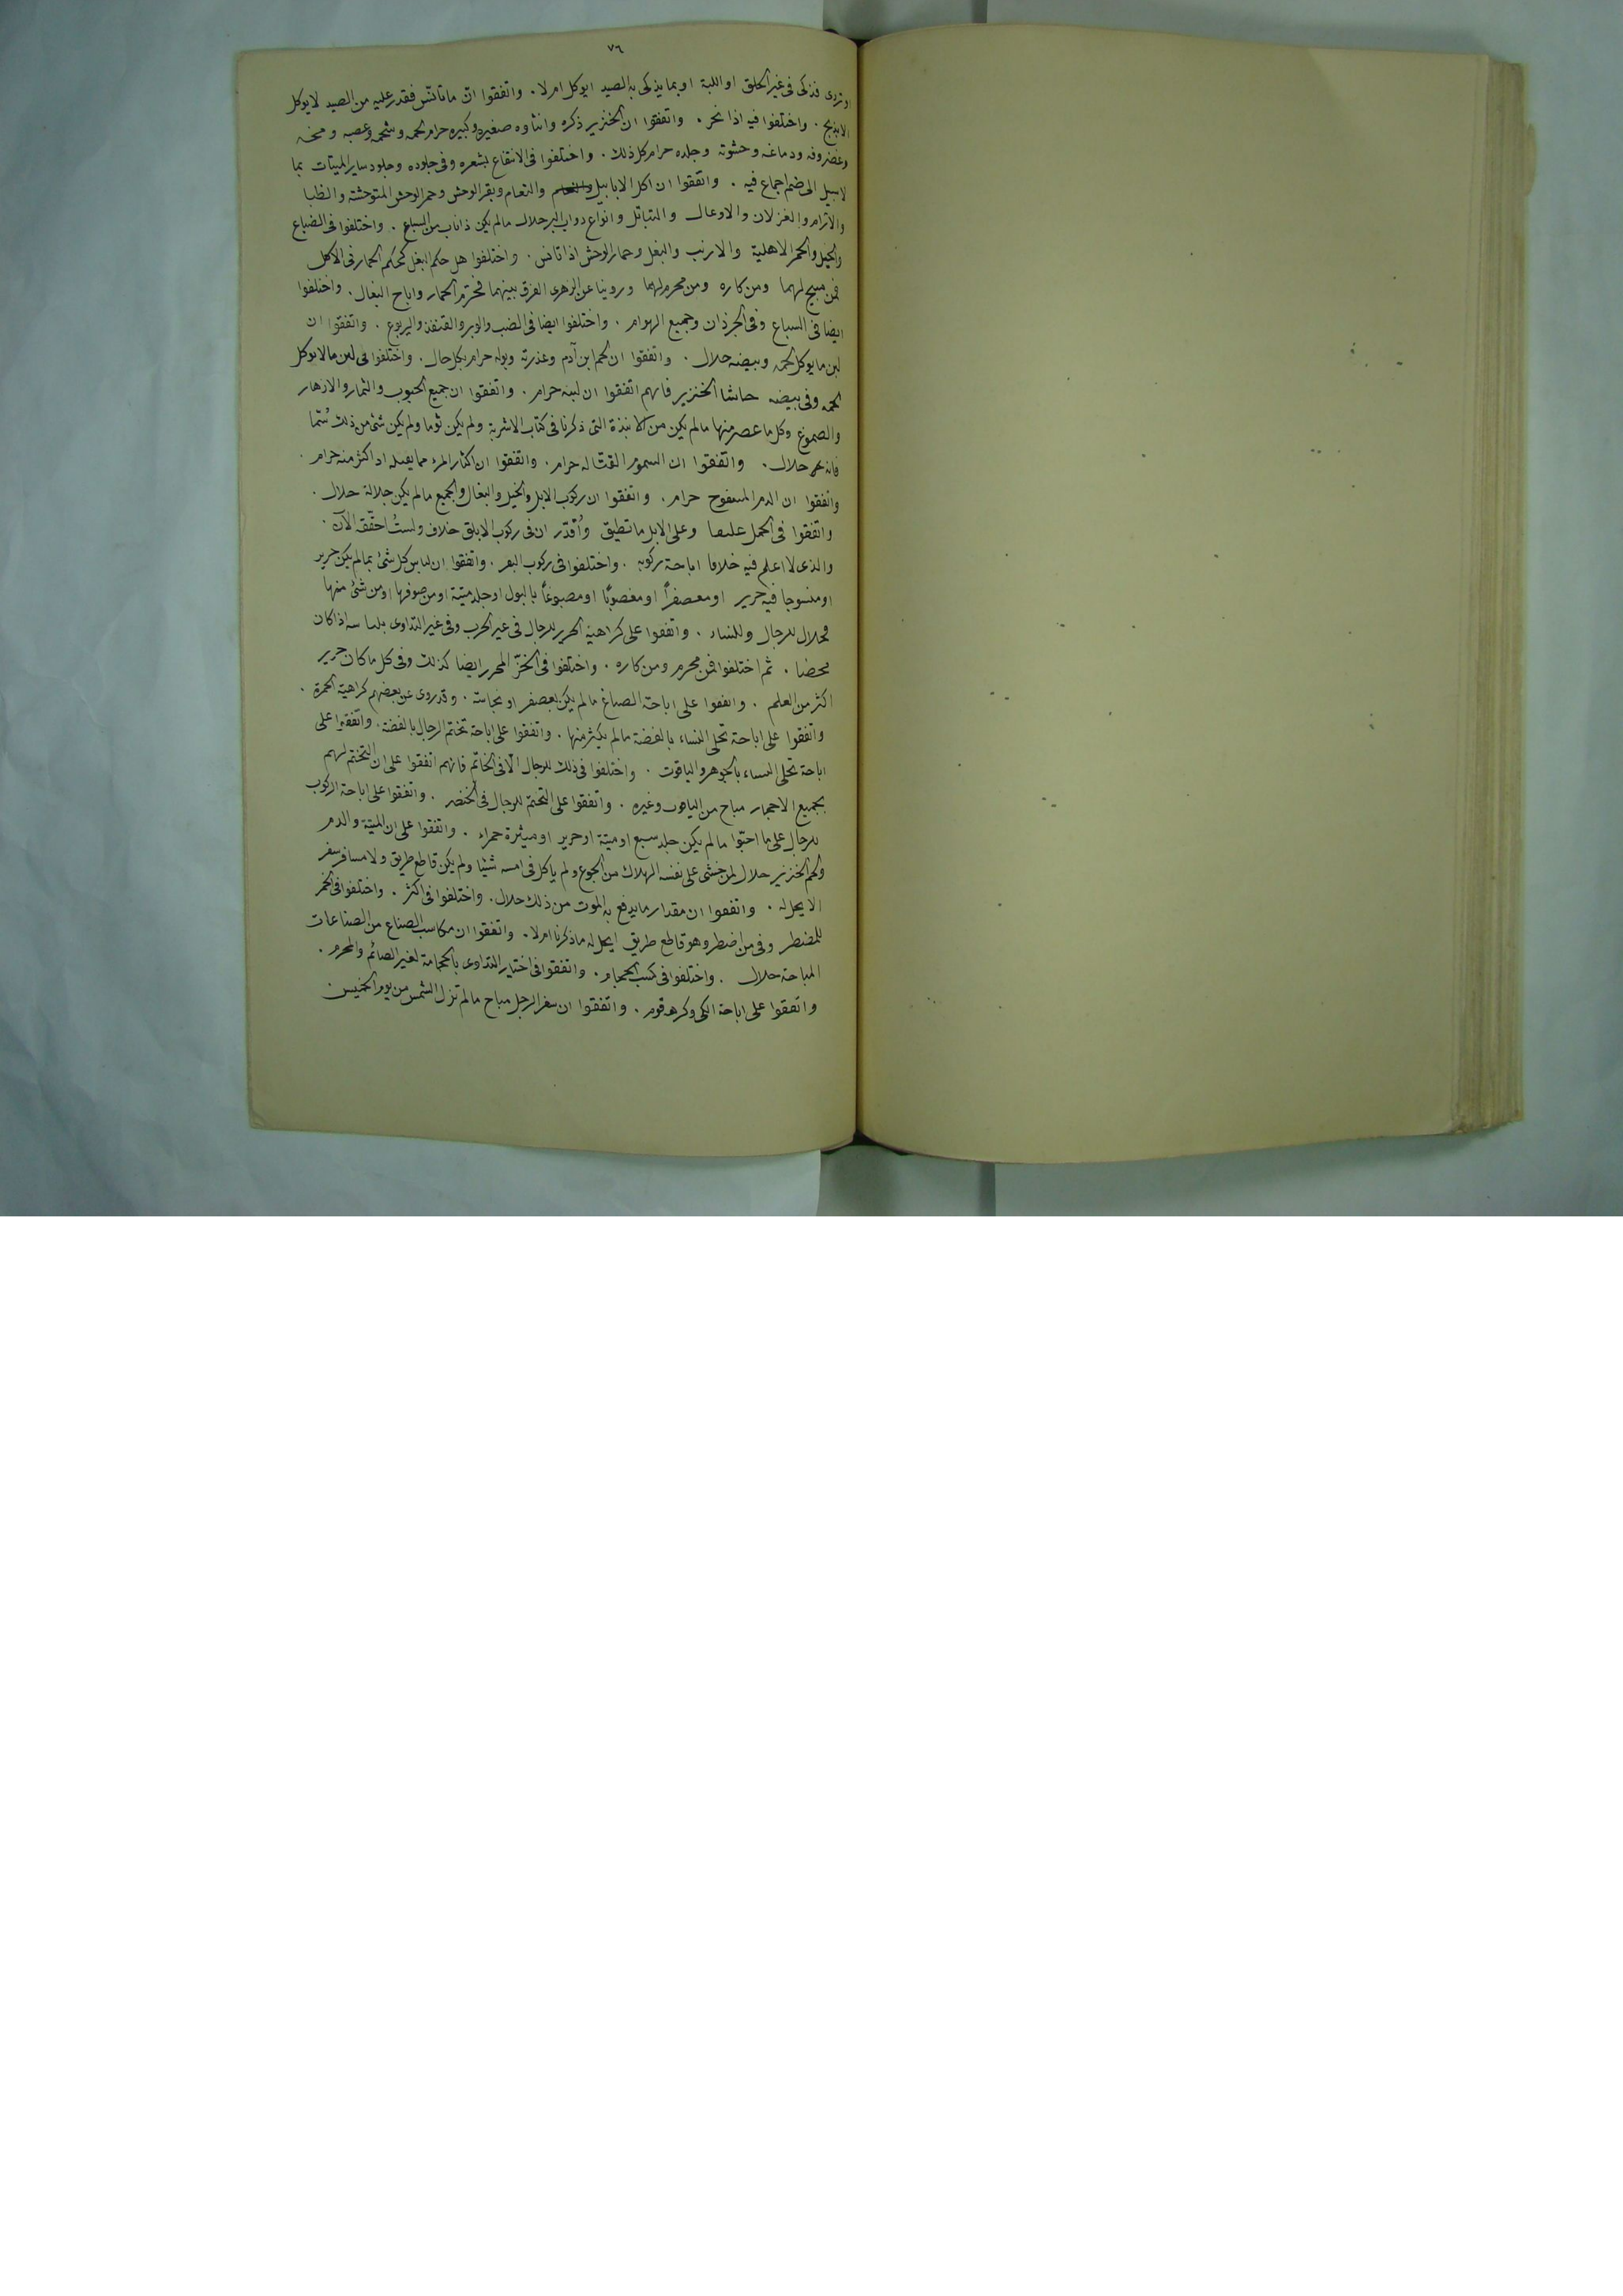 ٧٦
او تردى فذكى فى غير الحلق او اللبة او بما يذكى به الصيد ايوكل ام لا . واتفقوا انّ ما تانّس فقدر عليه من الصيد لا يوكل
الا بذبح . واختلفوا فيه اذا نحر . واتفقوا ان الخنزير ذكره وانثاه صغيره وكبيره حرام لحمه وشحمه وعصبه ومخه
وغضروفه ودماغه وحشوته وجلده حرام كل ذلك . واختلفوا فى الانتفاع بشعره وفى جلوده وجلود ساير الميتات بما
لا سبيل الى ضم اجماع فيه . واتفقوا ان اكل الابابيل والنعام وبقر الوحش وحمر الوحش المتوحشة والظبا
والآرام والغزلان والاوعال والتياتل وانواع دواب البر حلال مالم يكن ذا ناب من السباع . واختلفوا فى الضباع
والخيل والحمر الاهلية والارنب والبغل وحمار الوحش اذا تانس . واختلفوا هل حكم البغل كحكم الحمار فى الاكل
فمن مبيح لهما ومن كاره ومن محرم لهما وروينا عن الزهرى الفرق بينهما فحرّم الحمار واباح البغال . واختلفوا
ايضا فى السباع وفى الجرذان وجميع الهوام . واختلفوا ايضا فى الضب والوبر والقنفذ واليربوع . واتفقوا ان
لبن ما يوكل لحمه وبيضه حلال . واتفقوا ان لحم ابن آدم وعذرته وبوله حرام بكل حال . واختلفوا فى لبن ما لا يوكل
لحمه وفى بيضه حاشا الخنزير فانهم اتفقوا ان لبنه حرام . واتفقوا ان جميع الحبوب والثمار والازهار
والصموغ وكل ما عصر منها مالم يكن من الانبذة التى ذكرنا فى كتاب الاشربة ولم يكن ثوما ولم يكن شئ من ذلك سُمّا
فانه حلال . واتفقوا ان السموم القتّالة حرام . واتفقوا ان اكثار المرء مما يقتله اذا اكثر منه حرام .
واتفقوا ان الدم المسفوح حرام . واتفقوا ان ركوب الابل والخيل والبغال والجميع مالم يكن جلالة حلال .
واتفقوا فى الحمل عليها وعلى الابل ما تطيق وأُقدّر ان فى ركوب الابلق خلاف ولستُ احقّقه الآن .
والذى لا اعلم فيه خلافا اباحة ركوبه . واختلفوا فى ركوب البقر . واتفقوا ان لباس كل شئ مالم يكن حرير
او منسوجا فيه حرير او معصفراً او مغصوبًا او مصبوغاً بالبول او جلد ميتة او من صوفها او من شئ منها
فحلال للرجال وللنساء . واتفقوا على كراهية الحرير للرجال فى غير الحرب وفى غير التداوى بلباسه اذا كان
محضا . ثم اختلفوا فمن محرم ومن كاره . واختلفوا فى الخزّ المحرر ايضا كذلك وفى كل ما كان حرير
اكثر من العلم . واتفقوا على اباحة الصباغ مالم يكن بعصفر او نجاسة . وقد روى عن بعضهم كراهية الحمرة .
واتفقوا على اباحة تحلى النساء بالفضة مالم يكثر منها . واتفقوا على اباحة تختم الرجال بالفضة . واتفقوا على
اباحة تحلى النساء بالجوهر والياقوت . واختلفوا فى ذلك للرجال الّا فى الخاتم فانهم اتفقوا على ان التختم لهم
بجميع الاحجار مباح من الياقوت وغيره . واتفقوا على التختم للرجال فى الخنصر . واتفقوا على اباحة الركوب
للرجال على ما احبّوا مالم يكن جلد سبع او ميتة او حرير او ميثرة حمراء . واتفقوا على ان الميتة والدم
ولحم الخنزير حلال لمن خشى على نفسه الهلاك من الجوع ولم ياكل فى امسه شيئا ولم يكن قاطع طريق ولا مسافر سفر
لا يحل له . واتفقوا ان مقدار ما يدفع به الموت من ذلك حلال . واختلفوا فى اكثر . واختلفوا فى الخمر
للمضطر وفى من اضطر وهو قاطع طريق ايحل له ما ذكرنا ام لا . واتفقوا ان مكاسب الصناع من الصناعات
المباحة حلال . واختلفوا فى كسب الحجام . واتفقوا فى اختيار التداوى بالحجامة لغير الصائم والمحرم .
واتفقوا على اباحة الكى وكرهه قوم . واتفقوا ان سفر الرجل مباح مالم تزل الشمس من يوم الخميس .